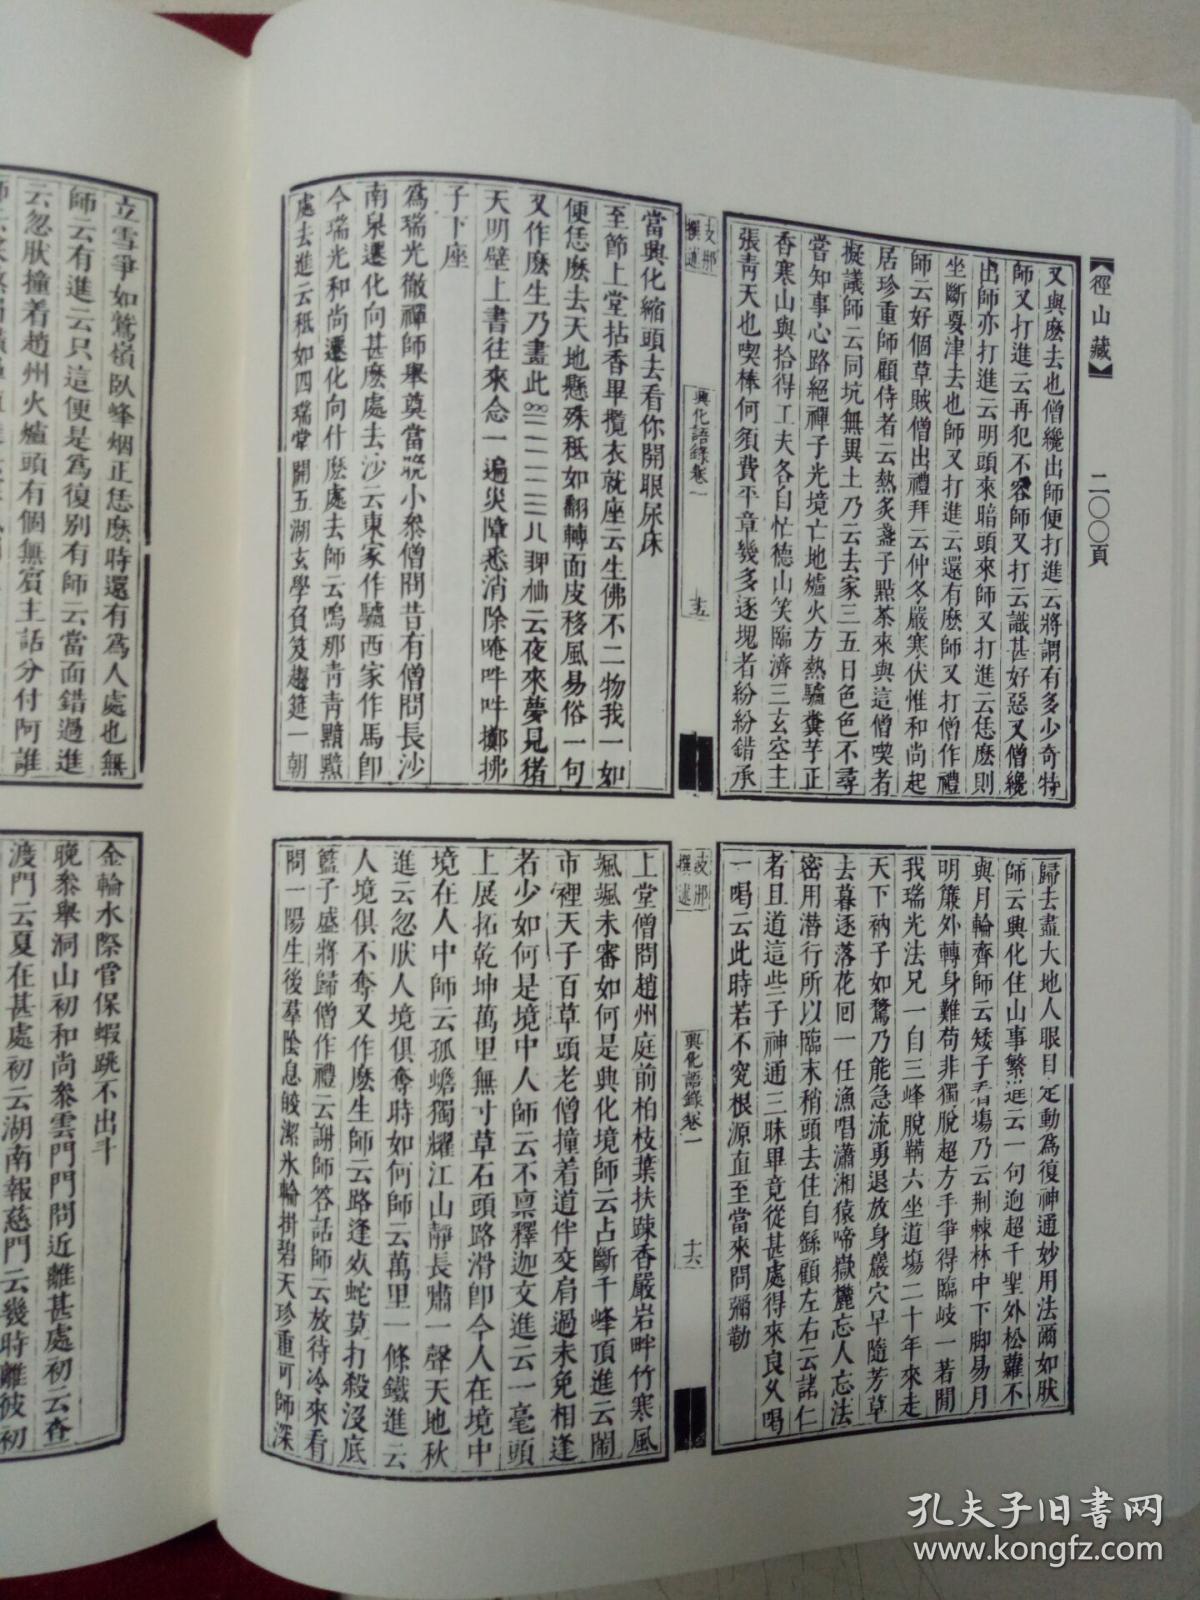 【徑山藏】
二〇〇頁
又與麽去也僧纔出師便打進云將謂有多少奇特
師又打進云再犯不容師又打云識甚好惡又僧纔
出師亦打進云明頭來暗頭來師又打進云恁麽則
坐斷要津去也師又打進云還有麽師又打僧作禮
師云好個草賊僧出禮拜云仲冬嚴寒伏惟和尚起
居珍重師顧侍者云熱炙盞子點茶來與這僧喫者
擬議師云同坑無異土乃云去家三五日色色不尋
當知事心路絕禪子光境亡地爐火方熱驢糞芋正
香寒山與拾得工夫各自忙德山笑臨濟三玄空主
張青天也喫棒何須費平章幾多逐塊者紛紛錯承
支那撰述
興化語錄卷一
十五
當興化縮頭去看你開眼尿床
至節上堂拈香畢攬衣就座云生佛不二物我一如
便恁麽去天地懸殊秪如翻轉面皮移風易俗一句
又作麽生乃畫此
云夜來夢見猪
天明壁上書往來念一遍災障悉消除唵吽吽擲拂
子下座
爲瑞光徹禪師舉奠當晚小參僧問昔有僧問長沙
南泉遷化向甚麽處去沙云東家作驢西家作馬卽
今瑞光和尚遷化向什麽處去師云嗚那青青黯黯
處去進云秪如四瑞堂開五湖玄學負笈趨筵一朝
歸去盡大地人眼目定動爲復神通妙用法爾如肰
師云興化住山事繁進云一句逈超千聖外松蘿不
與月輪齊師云矮子看塲乃云荆棘林中下脚易月
明簾外轉身難苟非獨脫超方手爭得臨岐一著閒
我瑞光法兄一自三峰脫鞴六坐道塲二十年來走
天下衲子如鶩乃能急流勇退放身巖穴早隨芳草
去暮逐落花回一任漁唱瀟湘猿啼嶽麓忘人忘法
密用潛行所以臨末稍頭去住自繇顧左右云諸仁
者且道這些子神通三昧畢竟從甚處得來良久喝
一喝云此時若不究根源直至當來問彌勒
支那撰述
興化語錄卷一
十六
上堂僧問趙州庭前柏枝葉扶踈香嚴岩畔竹寒風
颯颯未審如何是興化境師云占斷千峰頂進云鬧
市裡天子百草頭老僧撞着道伴交肩過未免相逢
者少如何是境中人師云不禀釋迦文進云一毫頭
上展拓乾坤萬里無寸草石頭路滑卽今人在境中
境在人中師云孤蟾獨耀江山靜長嘯一聲天地秋
進云忽肰人境俱奪時如何師云萬里一條鐵進云
人境俱不奪又作麽生師云路逢死蛇莫打殺沒底
籃子盛將歸僧作禮云謝師答話師云放待冷來看
問一陽生後羣陰息皎潔氷輪掛碧天珍重可師深
立雪爭如鷲嶺臥峰烟正恁麽時還有爲人處也無
師云有進云只這便是爲復别有師云當面錯過進
云忽肰撞着趙州火爐頭有個無賓主話分付阿誰
金輪水際嘗保蝦跳不出斗
晚參舉洞山初和尚參雲門門問近離甚處初云查
渡門云夏在甚處初云湖南報慈門云幾時離彼初
孔夫子旧书网
www.kongfz.com